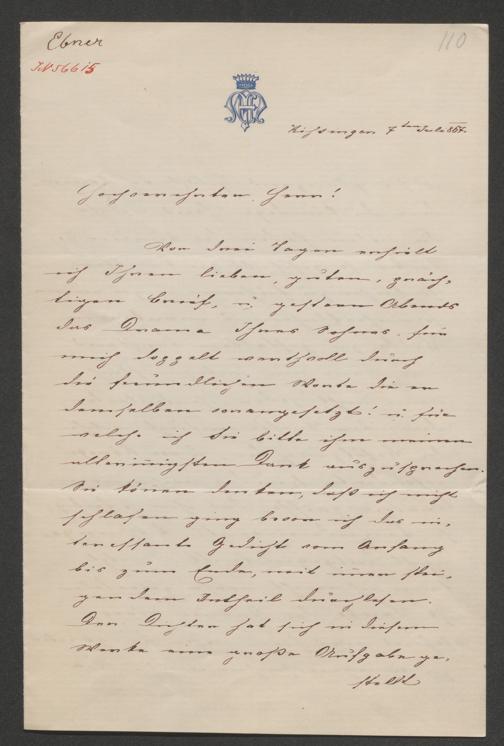 Ebner
110
IN 56615
Kissingen 7ten Juli 867.
Hochverehrter Herr!
Vor drei Tagen erhielt
ich Ihren lieben, guten, präch-
tigen Brief, u. gestern Abends
das Drama Ihres Sohnes, für
mich doppelt werthvoll durch
die freundlichen Worte die er
demselben vorangesetzt! u. für
welche ich Sie bitte ihm meinen
allerinnigsten Dank auszusprechen.
Sie können denken, daß ich nicht
schlafen ging bevor ich das in-
teressante Gedicht vom Anfang
bis zum Ende, mit immer stei-
gendem Antheil durchlesen.
Der Dichter hat sich in diesem
Werke eine große Aufgabe ge-
stellt